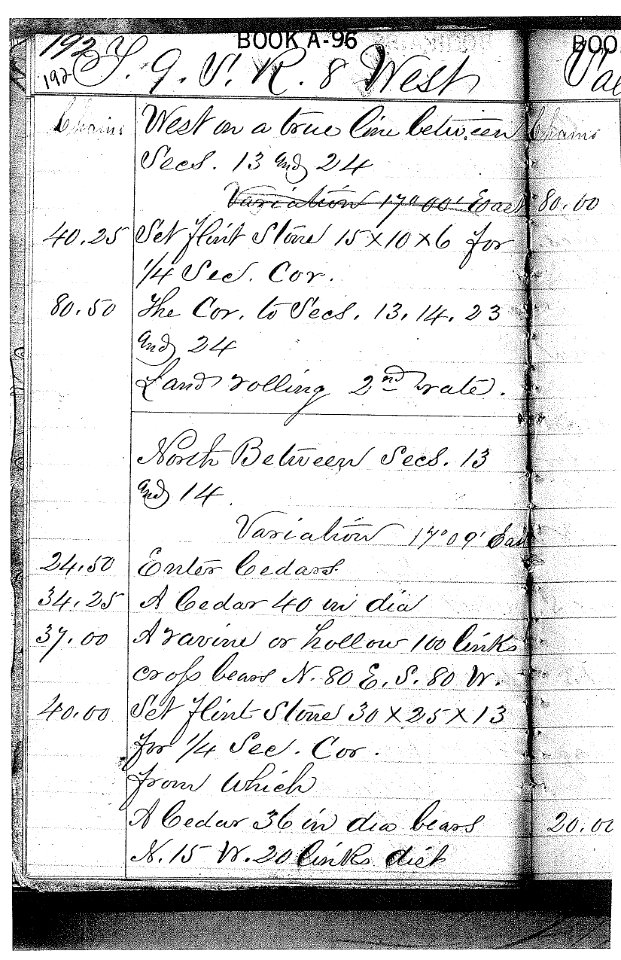 192 BOOK A-96 BOO
192 T. 9. S. R. 8 West
Chains West on a true line between Chains
Secs. 13 and 24
Variation 17°00' East 80.00
40.25 Set Flint Stone 15 x 10 x 6 for
1/4 Sec. Cor.
80.50 The Cor. to Secs. 13. 14. 23
and 24
Land rolling 2nd rate.
North Between Secs. 13
and 14
Variation 17°09' East
24.50 Enter Cedars
34.25 A Cedar 40 in dia
37.00 A ravine or hollow 100 links
cross bears N. 80 E. S. 80 W.
40.00 Set Flint Stone 30 x 25 x 13
for 1/4 Sec. Cor.
from which
A Cedar 36 in dia bears 20.00
N. 15 W. 20 links dist